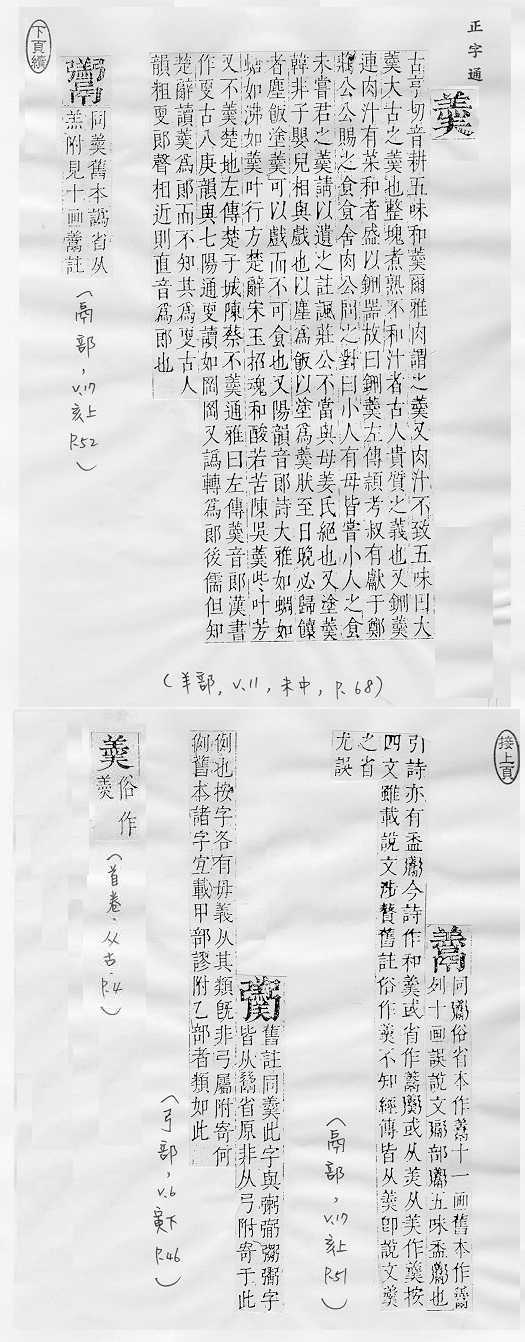 正字通
羹
古亨切音耕五味和羹爾雅肉謂之羹又肉汁不致五味曰大
羹大古之羹也整塊煮熟不和汁者古人貴質之義也又鉶羹
連肉汁有菜和者盛以鉶器故曰鉶羹左傳潁考叔有獻于鄭
莊公公賜之食食舍肉公問之對曰小人有母皆嘗小人之食
未嘗君之羹請以遺之註諷莊公不當與母姜氏絕也又塗羹
韓非子嬰兒相與戲也以塵爲飯以塗爲羹胾至日晚必歸饟
者塵飯塗羹可以戲而不可食也又陽韻音郎詩大雅如蜩如
螗如沸如羹叶行方楚辭宋玉招魂和酸若苦陳吳羹些叶芳
又不羹楚地左傳楚子城陳蔡不羹通雅曰左傳羹音郎漢書
作更古八庚韻與七陽通更讀如岡岡又譌轉爲郎後儒但知
楚辭讀羹爲郎而不知其爲更古人
韻粗更郎聲相近則直音爲郎也
(羊部, v.11, 未中, p.68)
同羹舊本譌省从
羔附見十画鬻註
(鬲部, v.17 亥上 p.52)
下頁續
接上頁
同䰞俗省本作䰞十一画舊本作䰞
列十画誤說文䰞部䰞五味盉䰞也
引詩亦有盉䰞今詩作和羹或省作䰞䰞或从美从美作羹按
四文雖載說文涉贅舊註俗作羮不知經傳皆从羹卽說文羹
之省
尤誤
(鬲部, v.17 亥上 p.51)
舊註同羹此字與粥弼鬻字
皆从䰜省原非从弓附寄于此
例也按字各有母義从其類旣非弓屬附寄何
例舊本諸字宜載甲部謬附乙部者類如此
(弓部, v.6 寅下 p.46)
羮
俗作
羹
(首卷·从古·p.4)